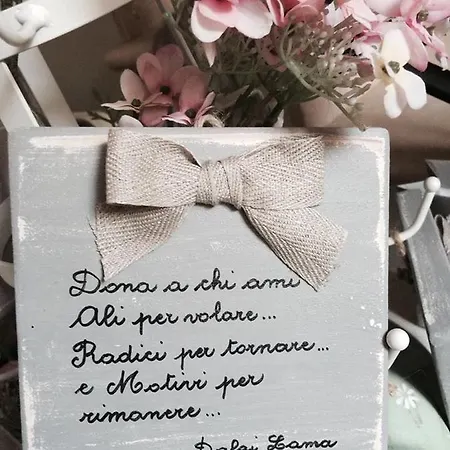 Dona a chi ami
Ali per volare...
Radici per tornare...
e Motivi per
rimanere...
Dalai Lama